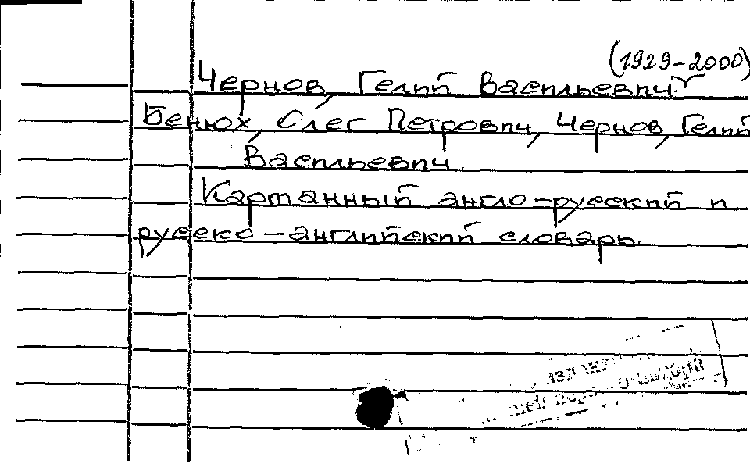 (1929-2000)
Чернов, Гелий Васильевич.
Бенюх, Олег Петрович, Чернов, Гелий
Васильевич.
Карманный англо-русский и
русско-английский словарь.